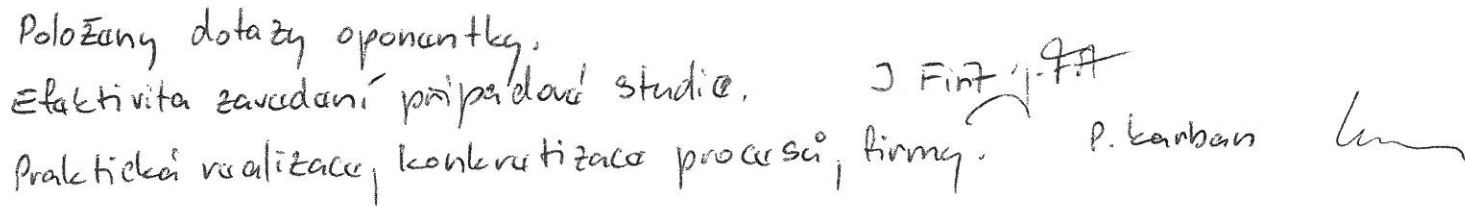 Položeny dotazy oponentky.
Efektivita zavedení případové studie. J. Fiřt
Praktická realizace, konkretizace procesů, firmy. P. Karban